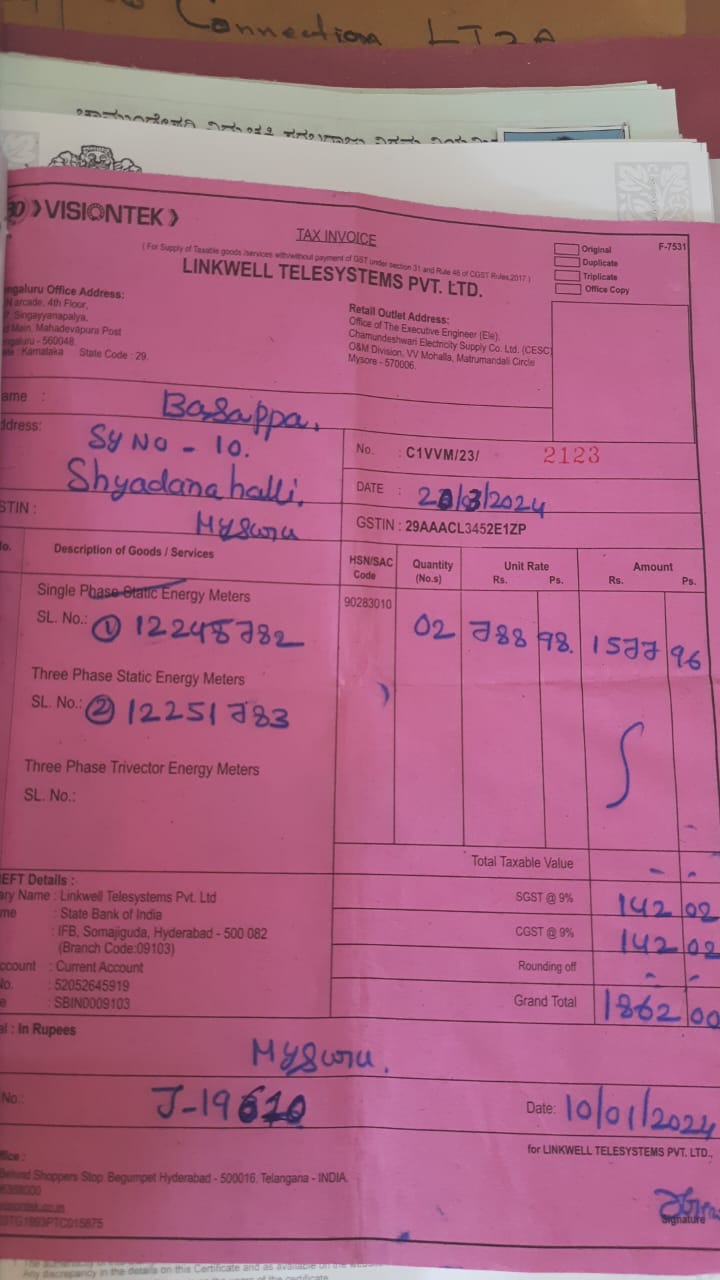 Connection LT2A
VISIONTEK
TAX INVOICE
( For Supply of Taxable goods /services with/without payment of GST under section 31 and Rule 46 of CGST Rules,2017 )
LINKWELL TELESYSTEMS PVT. LTD.
Original
Duplicate
Triplicate
Office Copy
F-7531
Office Address:
arcade, 4th Floor,
Singayyanapalya,
Main, Mahadevapura Post
- 560048.
: Karnataka State Code : 29.
Retail Outlet Address:
Office of The Executive Engineer (Ele),
Chamundeshwari Electricity Supply Co. Ltd. (CESC)
O&M Division, VV Mohalla, Matrumandali Circle
Mysore - 570006.
ame : Basappa.
ddress: Sy No - 10.
Shyadanahalli.
Mysuru
STIN :
No. : C1VVM/23/ 2123
DATE : /3/2024
GSTIN : 29AAACL3452E1ZP
o. Description of Goods / Services HSN/SAC Code Quantity (No.s) Unit Rate Rs. Ps. Amount Rs. Ps.
Single Phase Static Energy Meters 90283010
SL. No.: ① 12248782 02 788 98. 1577 96
Three Phase Static Energy Meters
SL. No.: ② 12251783
Three Phase Trivector Energy Meters
SL. No.:
Total Taxable Value
SGST @ 9% 142 02
CGST @ 9% 142 02
Rounding off
Grand Total 1862 00
EFT Details :
ary Name : Linkwell Telesystems Pvt. Ltd
me : State Bank of India
: IFB, Somajiguda, Hyderabad - 500 082
(Branch Code:09103)
ccount : Current Account
No. : 52052645919
e : SBIN0009103
al : In Rupees
Mysuru.
No.: J-19610
Date: 10/01/2024
for LINKWELL TELESYSTEMS PVT. LTD.,
ffice :
Behind Shoppers Stop, Begumpet Hyderabad - 500016, Telangana - INDIA.
Signature
on this Certificate and as available on the
Any discrepancy in the details on this Certificate